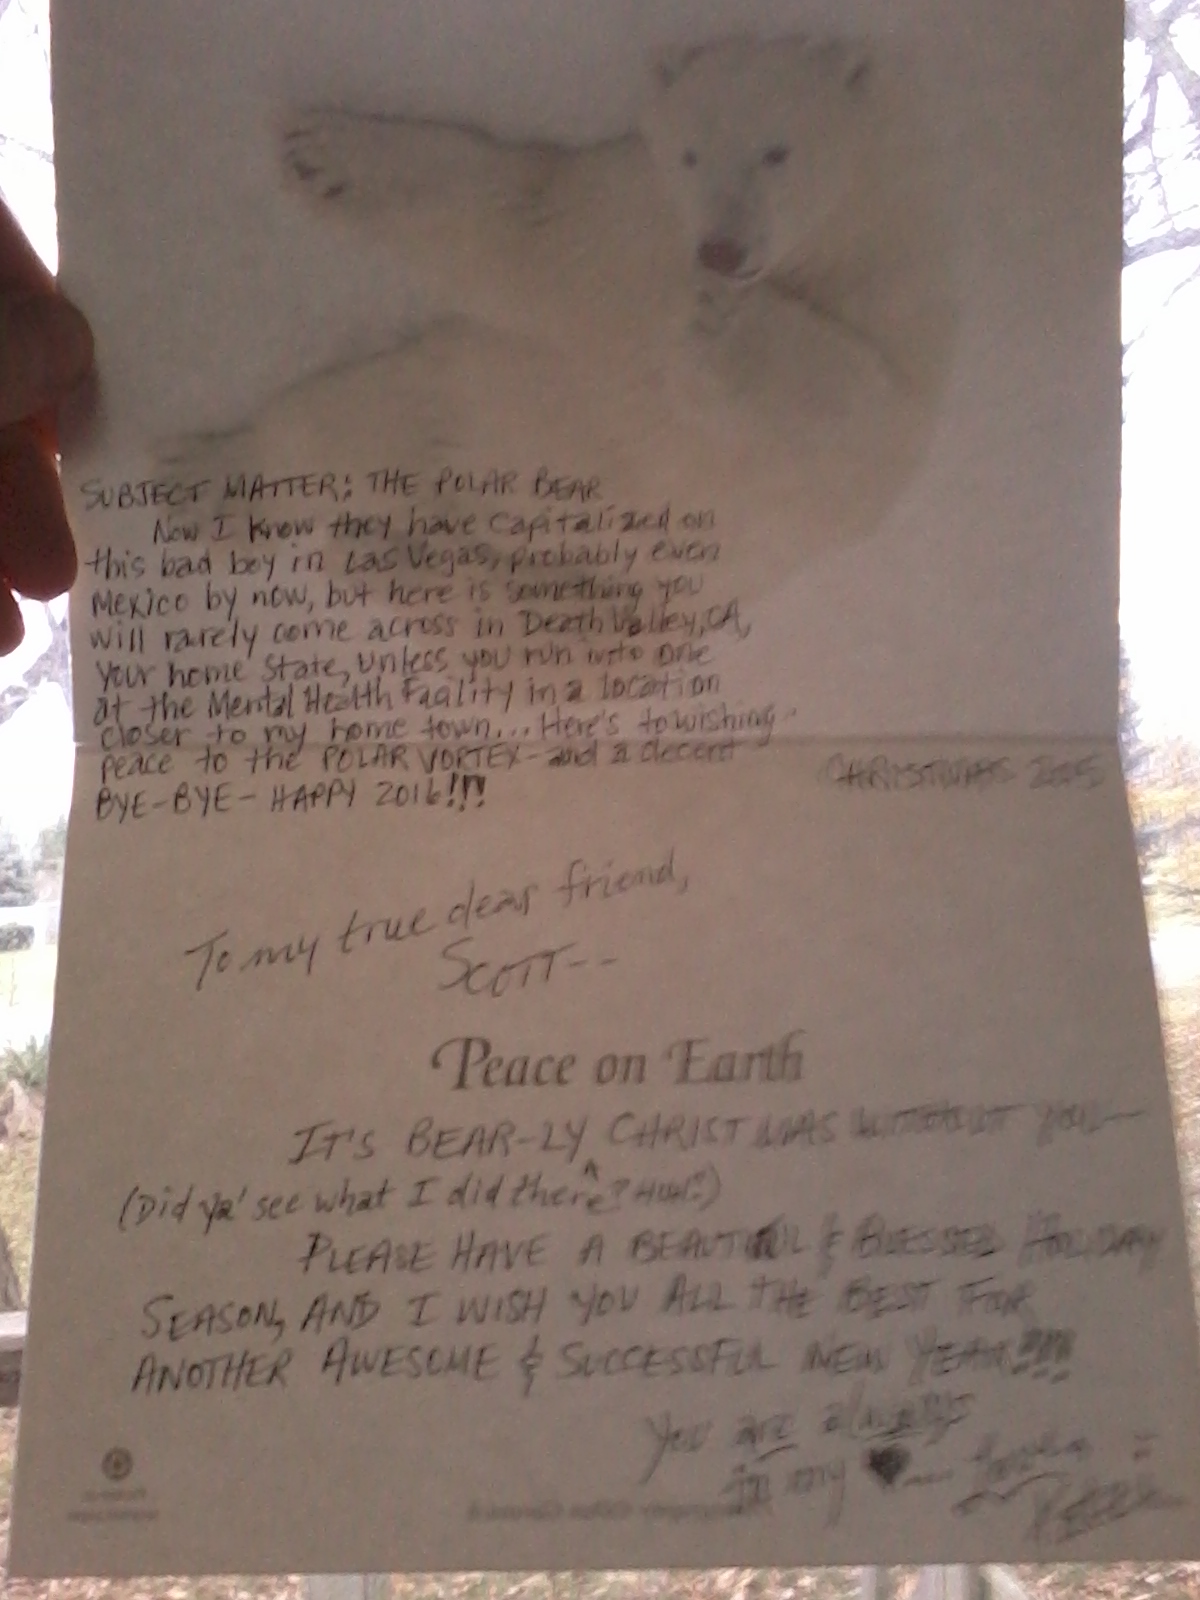 SUBJECT MATTER: THE POLAR BEAR
Now I know they have capitalized on
this bad boy in Las Vegas, probably even
Mexico by now, but here is something you
will rarely come across in Death Valley, CA,
your home state, unless you run into one
at the Mental Health Facility in a location
closer to my home town... Here's to wishing
peace to the POLAR VORTEX - and a decent
BYE-BYE - HAPPY 2016!!!
CHRISTMAS 2015
To my true dear friend,
SCOTT--
Peace on Earth
IT'S BEAR-LY CHRISTMAS WITHOUT YOU—
(Did ya' see what I did there?
PLEASE HAVE A BEAUTIFUL & BLESSED HOLIDAY
SEASON, AND I WISH YOU ALL THE BEST FOR
ANOTHER AWESOME & SUCCESSFUL NEW YEAR!!!!
You are always
in my ♥—